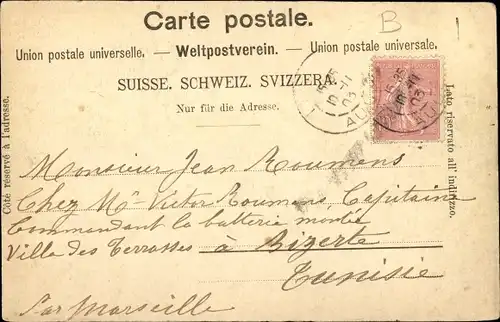 Carte postale.
B
Union postale universelle. – Weltpostverein. – Union postale universale.
SUISSE. SCHWEIZ. SVIZZERA.
Nur für die Adresse.
Côté réservé à l'adresse.
Lato riservato all' indirizzo.
15 35
10 - 11
03
Monsieur Jean Roumens
Chez Mr Victor Roumens, Capitaine
Commandant la batterie montée
Ville des Terrasses à Bizerte
Tunisie
Par Marseille